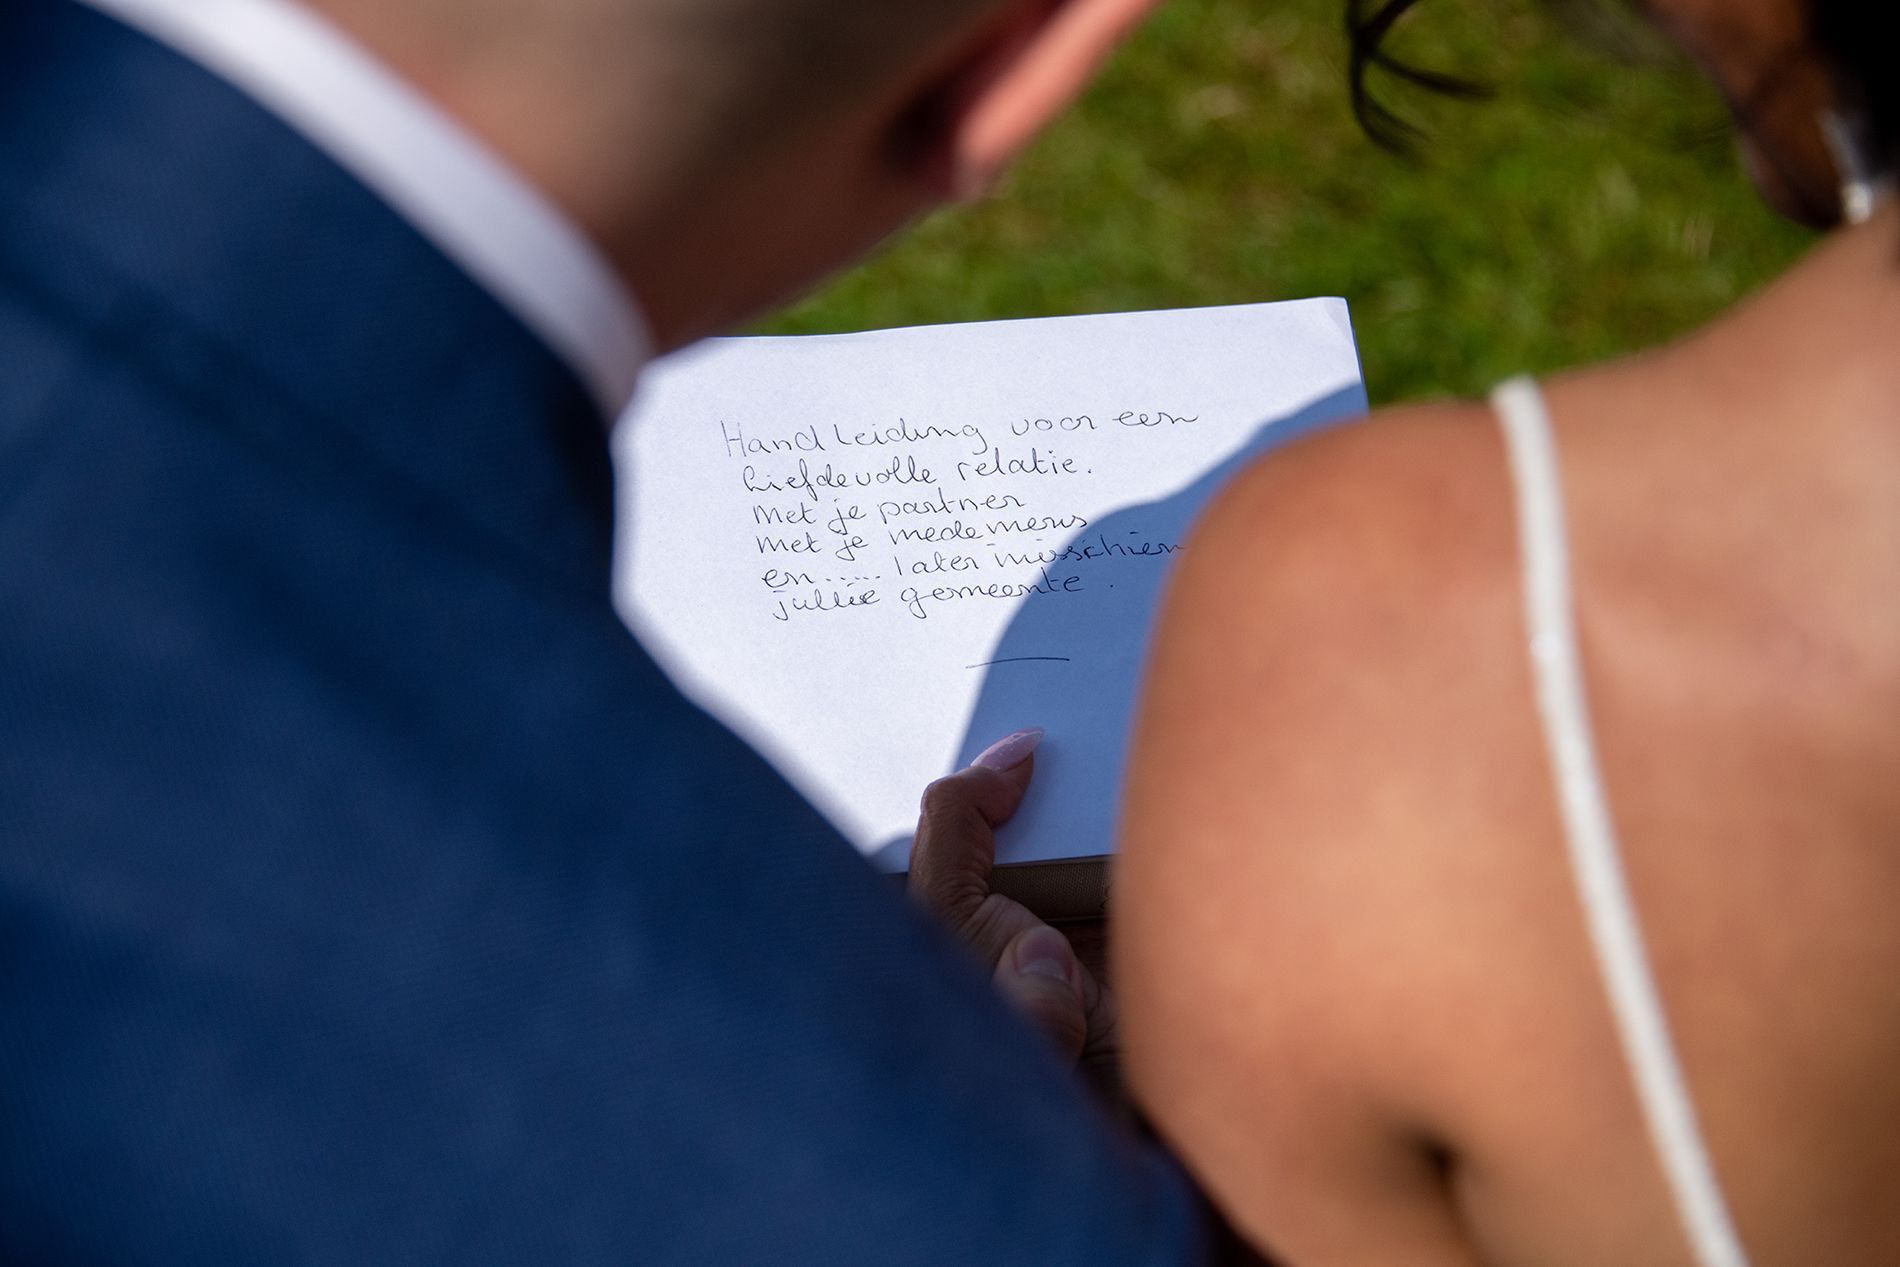 Handleiding voor een
liefdevolle relatie.
Met je partner
Met je medemens
en...... later misschien
jullie gemeente.